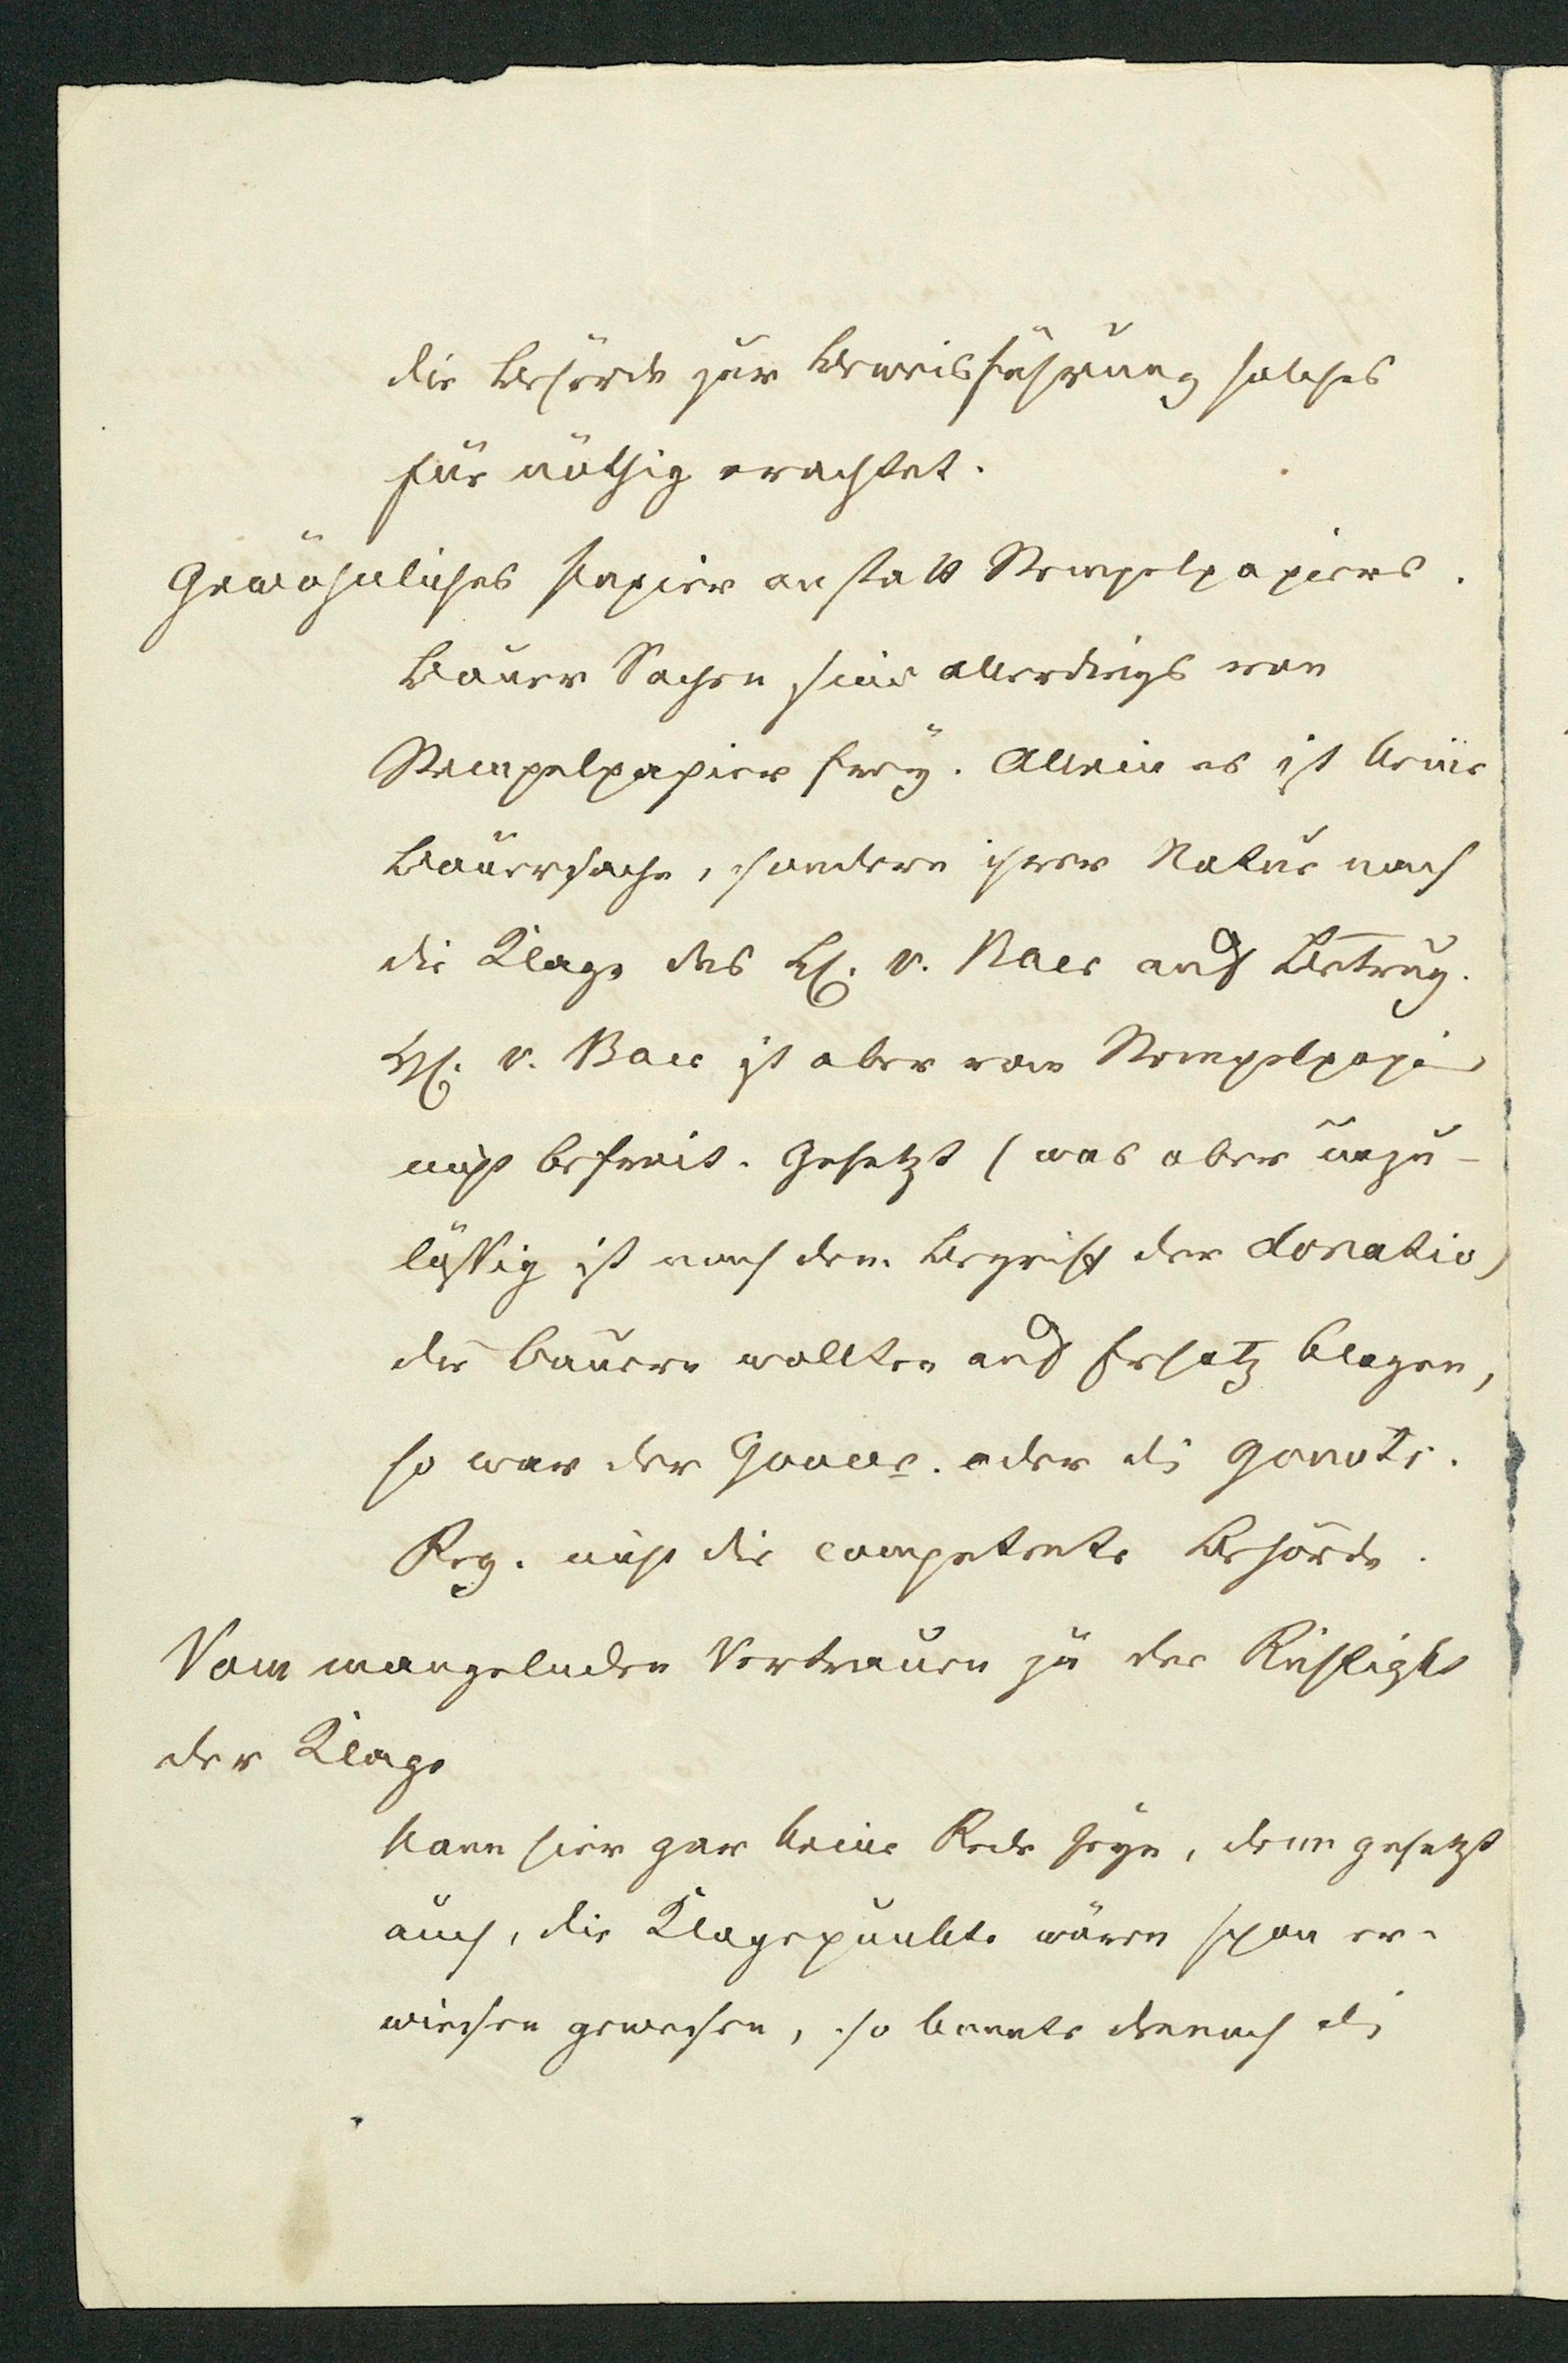 die Behörde zur Beweisführung solches
für nöthig erachtet.
Gewöhnliches Papier anstatt Stempelpapiers.
Bauer Sachen sind allerdings von
Stempelpapier frey. Allein es ist keine
Bauersache, sondern ihrer Natur nach
die Klage des H. v. Baer auf Betrug.
H. v. Baer ist aber vom Stempelpapier
nicht befreit. Gesetzt (was aber unzu-
lässig ist nach dem Begriff der donatio)
die Bauern wollten auf Ersatz klagen,
so war der Gouver. oder die Gouvts.
Reg. nicht die competente Behörde.
Vom mangelnden Vertrauen zu der Richtigkt
der Klage
kann hier gar keine Rede seyn, denn gesetzt
auch, die Klagepunkte wären schon er-
wiesen gewesen, so konnte dennoch die